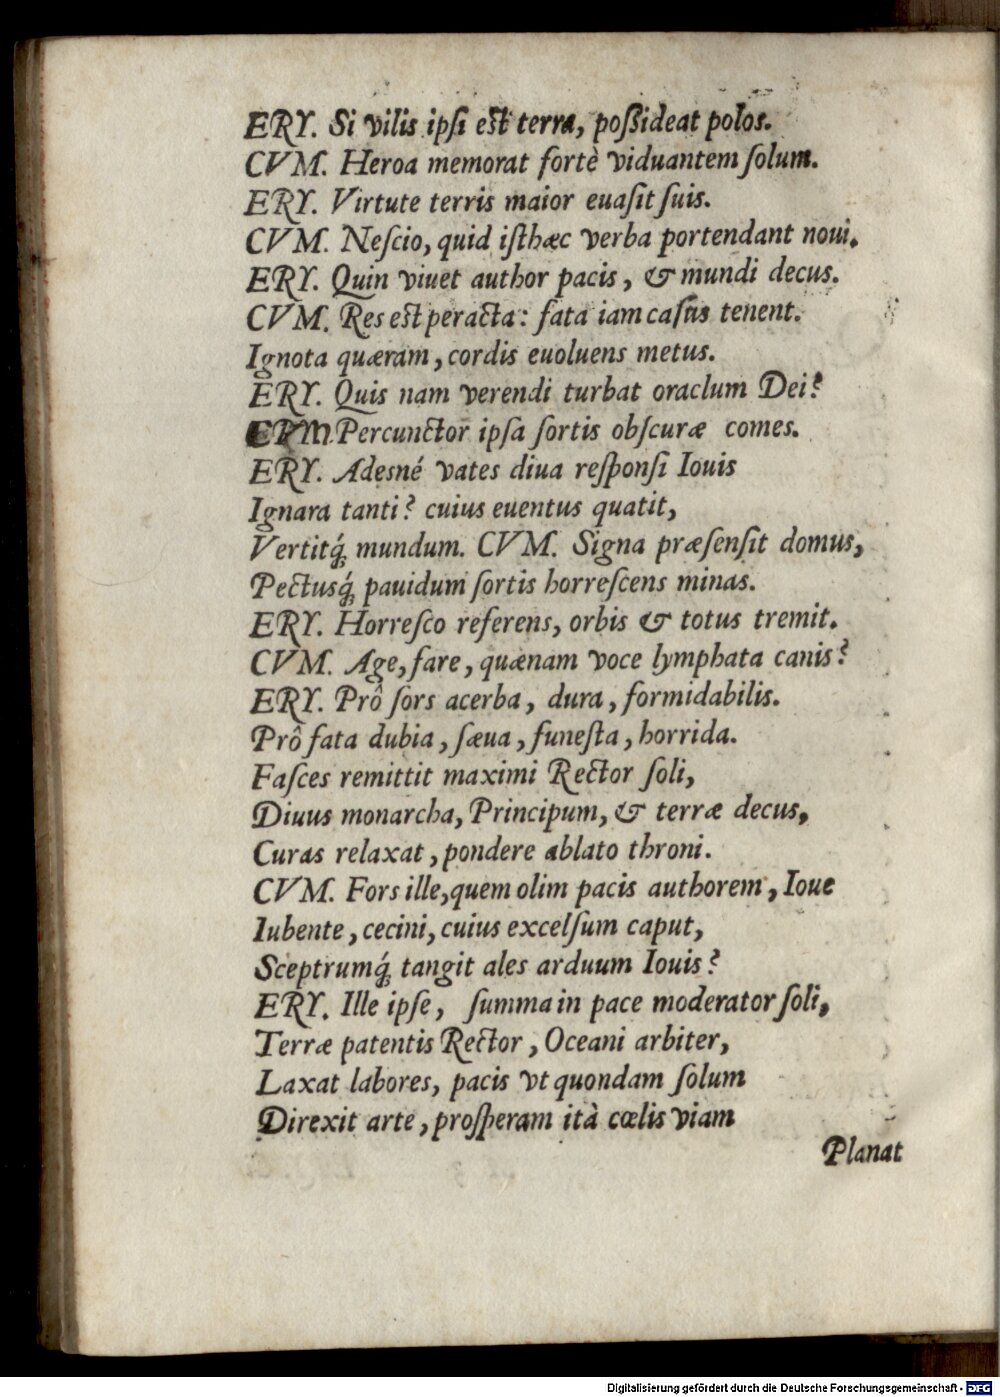 ERY. Si vilis ipsi est terra, poßideat polos.
CVM. Heroa memorat fortè viduantem solum.
ERY. Virtute terris maior euasit suis.
CVM. Nescio, quid isthæc verba portendant noui.
ERY. Quin viuet author pacis, & mundi decus.
CVM. Res est peracta: fata iam casus tenent.
Ignota quæram, cordis euoluens metus.
ERY. Quis nam verendi turbat oraclum Dei?
Percunctor ipsa sortis obscuræ comes.
ERY. Adesné vates diua responsi Iouis
Ignara tanti? cuius euentus quatit,
Vertitq́; mundum. CVM. Signa præsensit domus,
Pectusq́; pauidum sortis horrescens minas.
ERY. Horresco referens, orbis & totus tremit.
CVM. Age, fare, quænam voce lymphata canis?
ERY. Prô sors acerba, dura, formidabilis.
Prô fata dubia, sæua, funesta, horrida.
Fasces remittit maximi Rector soli,
Diuus monarcha, Principum, & terræ decus,
Curas relaxat, pondere ablato throni.
CVM. Fors ille, quem olim pacis authorem, Ioue
Iubente, cecini, cuius excelsum caput,
Sceptrumq́; tangit ales arduum Iouis?
ERY. Ille ipse, summa in pace moderator soli,
Terræ patentis Rector, Oceani arbiter,
Laxat labores, pacis vt quondam solum
Direxit arte, prosperam ità cœlis viam
Planat
Digitalisierung gefördert durch die Deutsche Forschungsgemeinschaft - DFG